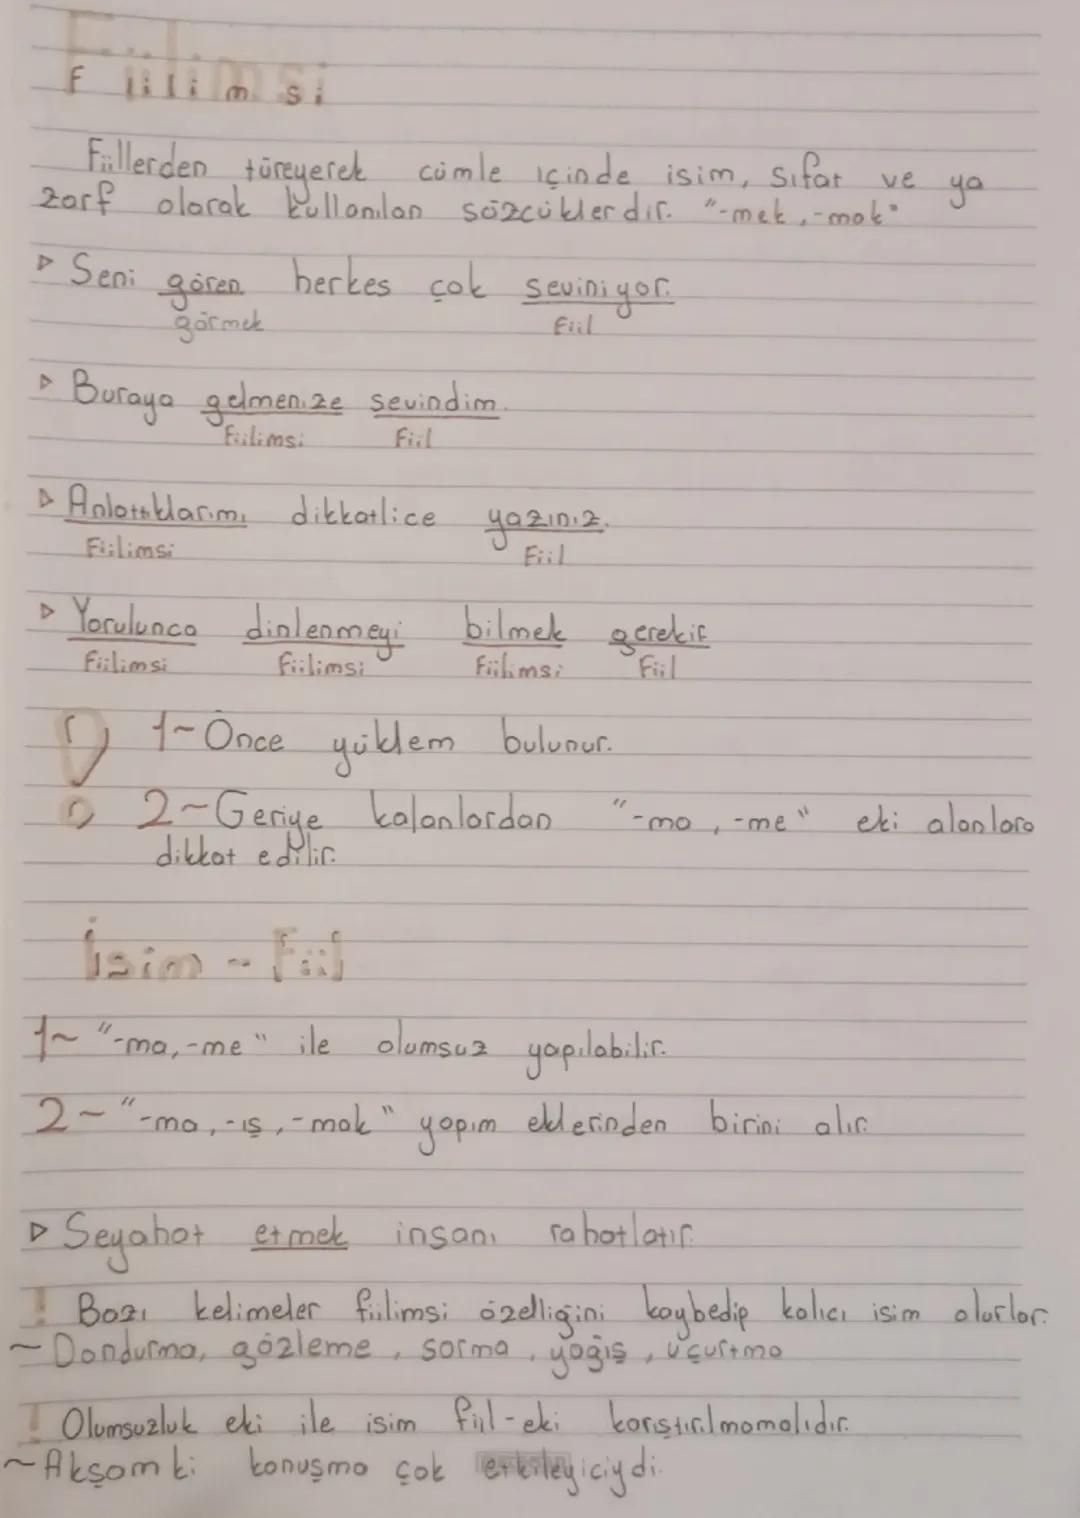 Fiilimsi
Fiillerden türeyerek cümle içinde isim, sıfat ve ya
zarf olarak kullanılan sözcüklerdir. "-mek, -mak"
▷ Seni gören herkes çok seviniyor.
görmek Fiil
▷ Buraya gelmenize sevindim.
Fiilimsi Fiil
▷ Anlattıklarımı dikkatlice yazınız.
Fiilimsi Fiil
▷ Yorulunca dinlenmeyi bilmek gerekir
Fiilimsi Fiilimsi Fiilimsi Fiil
! 1~ Önce yüklem bulunur.
2~ Geriye kalanlardan "-ma, -me" eki alanlara
dikkat edilir.
İsim - Fiil
1~ "-ma, -me" ile olumsuz yapılabilir.
2~ "-ma, -ış, -mak" yapım eklerinden birini alır.
▷ Seyahat etmek insanı rahatlatır.
! Bazı kelimeler fiilimsi özelliğini kaybedip kalıcı isim olurlar.
~ Dondurma, gözleme, sarma, yağış, uçurtma
! Olumsuzluk eki ile isim fiil-eki karıştırılmamalıdır.
~ Akşamki konuşma çok etkileyiciydi.